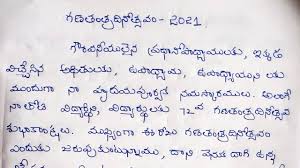 గణతంత్రదినోత్సవం - 2021.
గౌరవనీయులైన ప్రధానోపాధ్యాయులు, ఇక్కడ
విచ్చేసిన అతిథులకు, ఉపాధ్యాయ, ఉపాధ్యాయిని లకు
ముందుగా నా హృదయపూర్వక నమస్కారములు. అలాగే
నా తోటి విద్యార్థిని, విద్యార్థులకు 72వ గణతంత్రదినోత్సవ
శుభాకాంక్షలు. ముఖ్యంగా ఈ రోజు గణతంత్రదినోత్సవం
ఎందుకు జరుపుకుంటున్నాము, దాని వెనుక దాగి ఉన్న